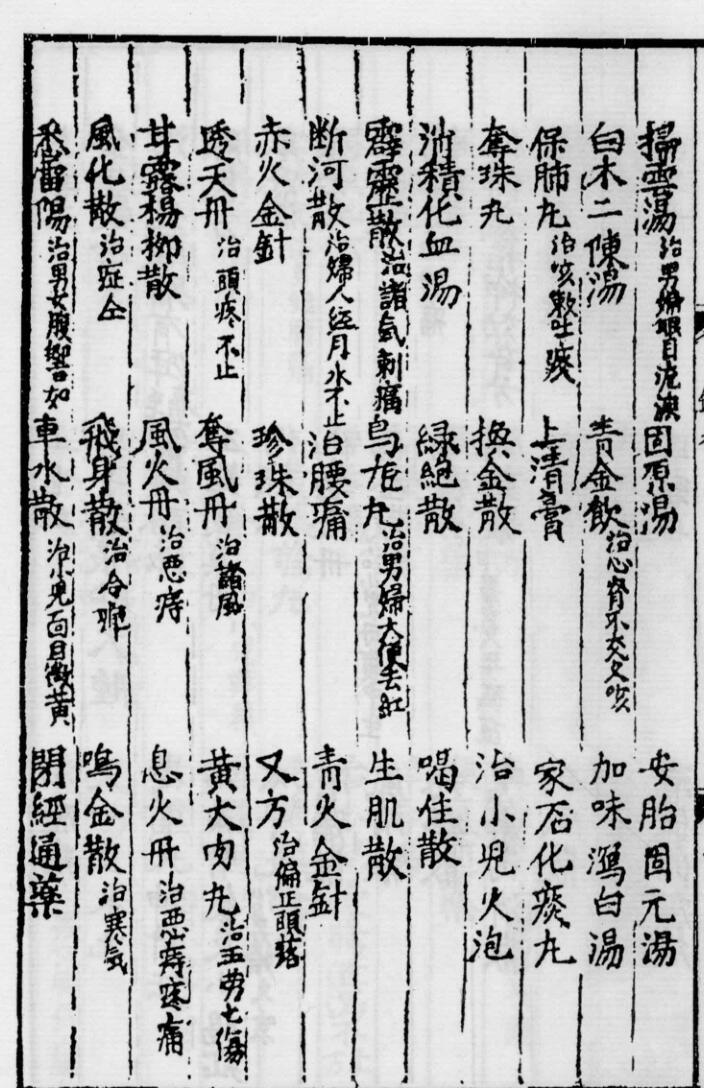 掃雲湯 治男婦眼目流淚 固原湯 安胎固元湯
白木二陳湯 青金飲 治心腎不交久咳 加味瀉白湯
保肺丸 治咳嗽吐痰 上清膏 家否化痰丸
奪珠丸 換金散 治小兒火泡
消積化血湯 綠絕散 喝住散
霹靂散 治諸氣刺痛 烏龙丸 治男婦大便去紅 生肌散
断河散 治婦人經月水不止 治腰痛 青火金針
赤火金針 珍珠散 又方 治偏正頭
透天丹 治頭疼不止 奪風丹 治諸風 黃大肉丸 治五劳七傷
甘露楊柳散 風火丹 治惡痔 息火丹 治惡痔疼痛
風化散 治症仝 飛身散 治仝 鳴金散 治寒氣
雷陽 治男女腹響如 車水散 治小兒面目黃 閉經通藥